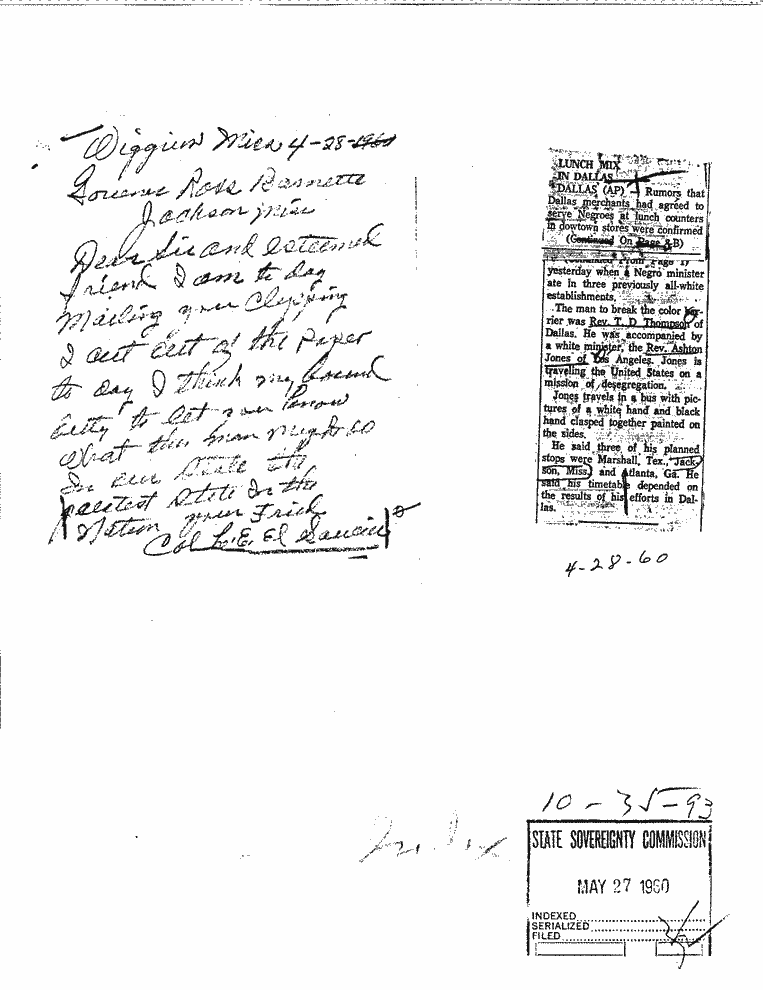 Wiggins Miss 4-28-1960
Governor Ross Barnette
Jackson Miss
Dear Sir and esteemed
friend I am to day
Mailing you Clipping
I cut out of the Paper
to day I think my bound
duty to let you know
What this man might do
In our State the
State In the
Nation your Fried
Col L. E.
LUNCH MIX
IN DALLAS
DALLAS (AP) — Rumors that
Dallas merchants had agreed to
serve Negroes at lunch counters
in dowtown stores were confirmed
(Continued On Page 8B)
(Continued From Page 1)
yesterday when a Negro minister
ate in three previously all-white
establishments.
The man to break the color bar-
rier was Rev. T. D Thompson of
Dallas. He was accompanied by
a white minister, the Rev. Ashton
Jones of Los Angeles. Jones is
traveling the United States on a
mission of desegregation.
Jones travels in a bus with pic-
tures of a white hand and black
hand clasped together painted on
the sides.
He said three of his planned
stops were Marshall, Tex., Jack-
son, Miss. and Atlanta, Ga. He
said his timetable depended on
the results of his efforts in Dal-
las.
4-28-60
Index
10-35-93
STATE SOVEREIGNTY COMMISSION
MAY 27 1960
INDEXED
SERIALIZED
FILED